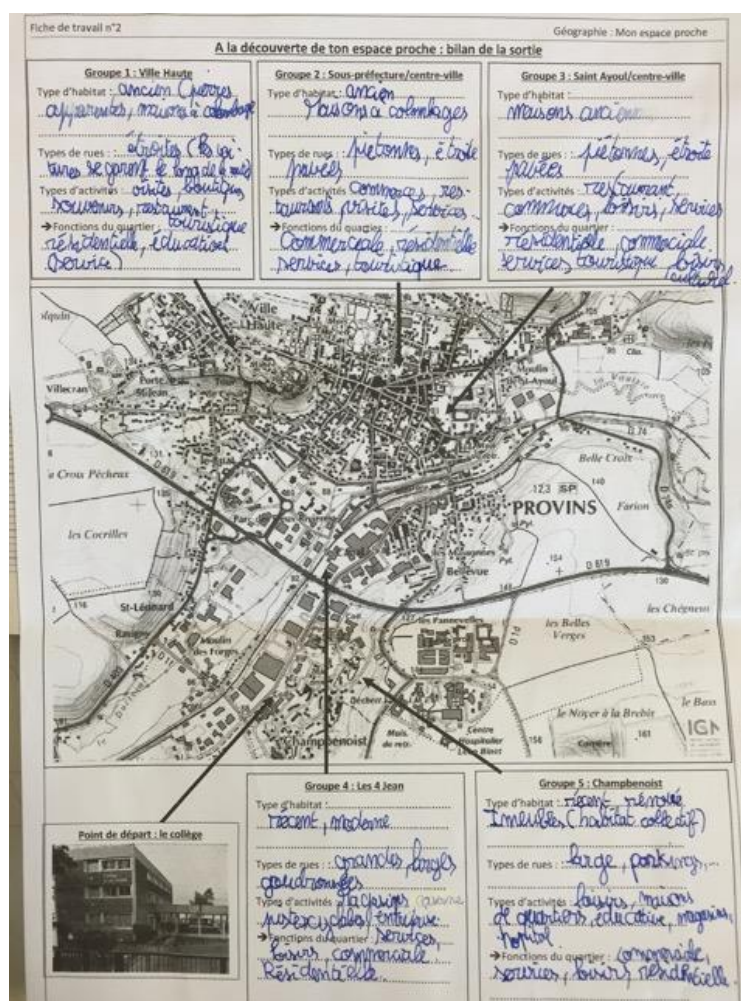 Fiche de travail n°2
Géographie : Mon espace proche
A la découverte de ton espace proche : bilan de la sortie
Groupe 1 : Ville Haute
Type d'habitat : ancien (pierres
apparentes, maisons à colombage
Types de rues : étroites (les voi-
tures se garent le long de la
Types d'activités : visites, boutiques
souvenirs, restaurant
→Fonctions du quartier : touristique
résidentielle, éducative
(service)
Groupe 2 : Sous-préfecture/centre-ville
Type d'habitat : ancien
Maisons à colombages
Types de rues : piétonnes, étroite
pavées
Types d'activités commerces, res-
taurants visites, services
→Fonctions du quartier :
Commerciale, résidentielle
services, touristique
Groupe 3 : Saint Ayoul/centre-ville
Type d'habitat :
maisons
Types de rues : piétonnes, étroite
pavées
Types d'activités : restaurant,
commerces, loisirs, services
→Fonctions du quartier :
résidentielle, commerciale
services touristique, loisirs
culturel.
Ville
Haute
Villecran
Porte
St-Jean
Moulin
St-Ayoul
la Croix Pécheux
D 619
Belle Croix
12,3 SP
140
PROVINS
Farion
les Cocrilles
Bellevue
154
D 619
130
116
St-Léonard
les Chégneux
les Pannevelles
les Belles
Verges
153
Moulin
des Forges
D 1d
Déchett
Champbenoist
Mais.
de retr.
Centre
Hospitalier
Léon Binet
le Noyer à la Brebis
156
161
le Bass
IGN
Point de départ : le collège
Groupe 4 : Les 4 Jean
Type d'habitat :
récent, moderne
Types de rues : grandes, larges
goudronnées
Types d'activités : magasins
→Fonctions du quartier : services,
loisirs, commerciale
Résidentielle
Groupe 5 : Champbenoist
Type d'habitat : récent, rénové
Imeubles (habitat collectif)
Types de rues : large, parkings,
Types d'activités : loisirs, maisons
de quartiers, éducative, magasins,
hopital
→Fonctions du quartier : commerciale,
services, loisirs, résidentielle.